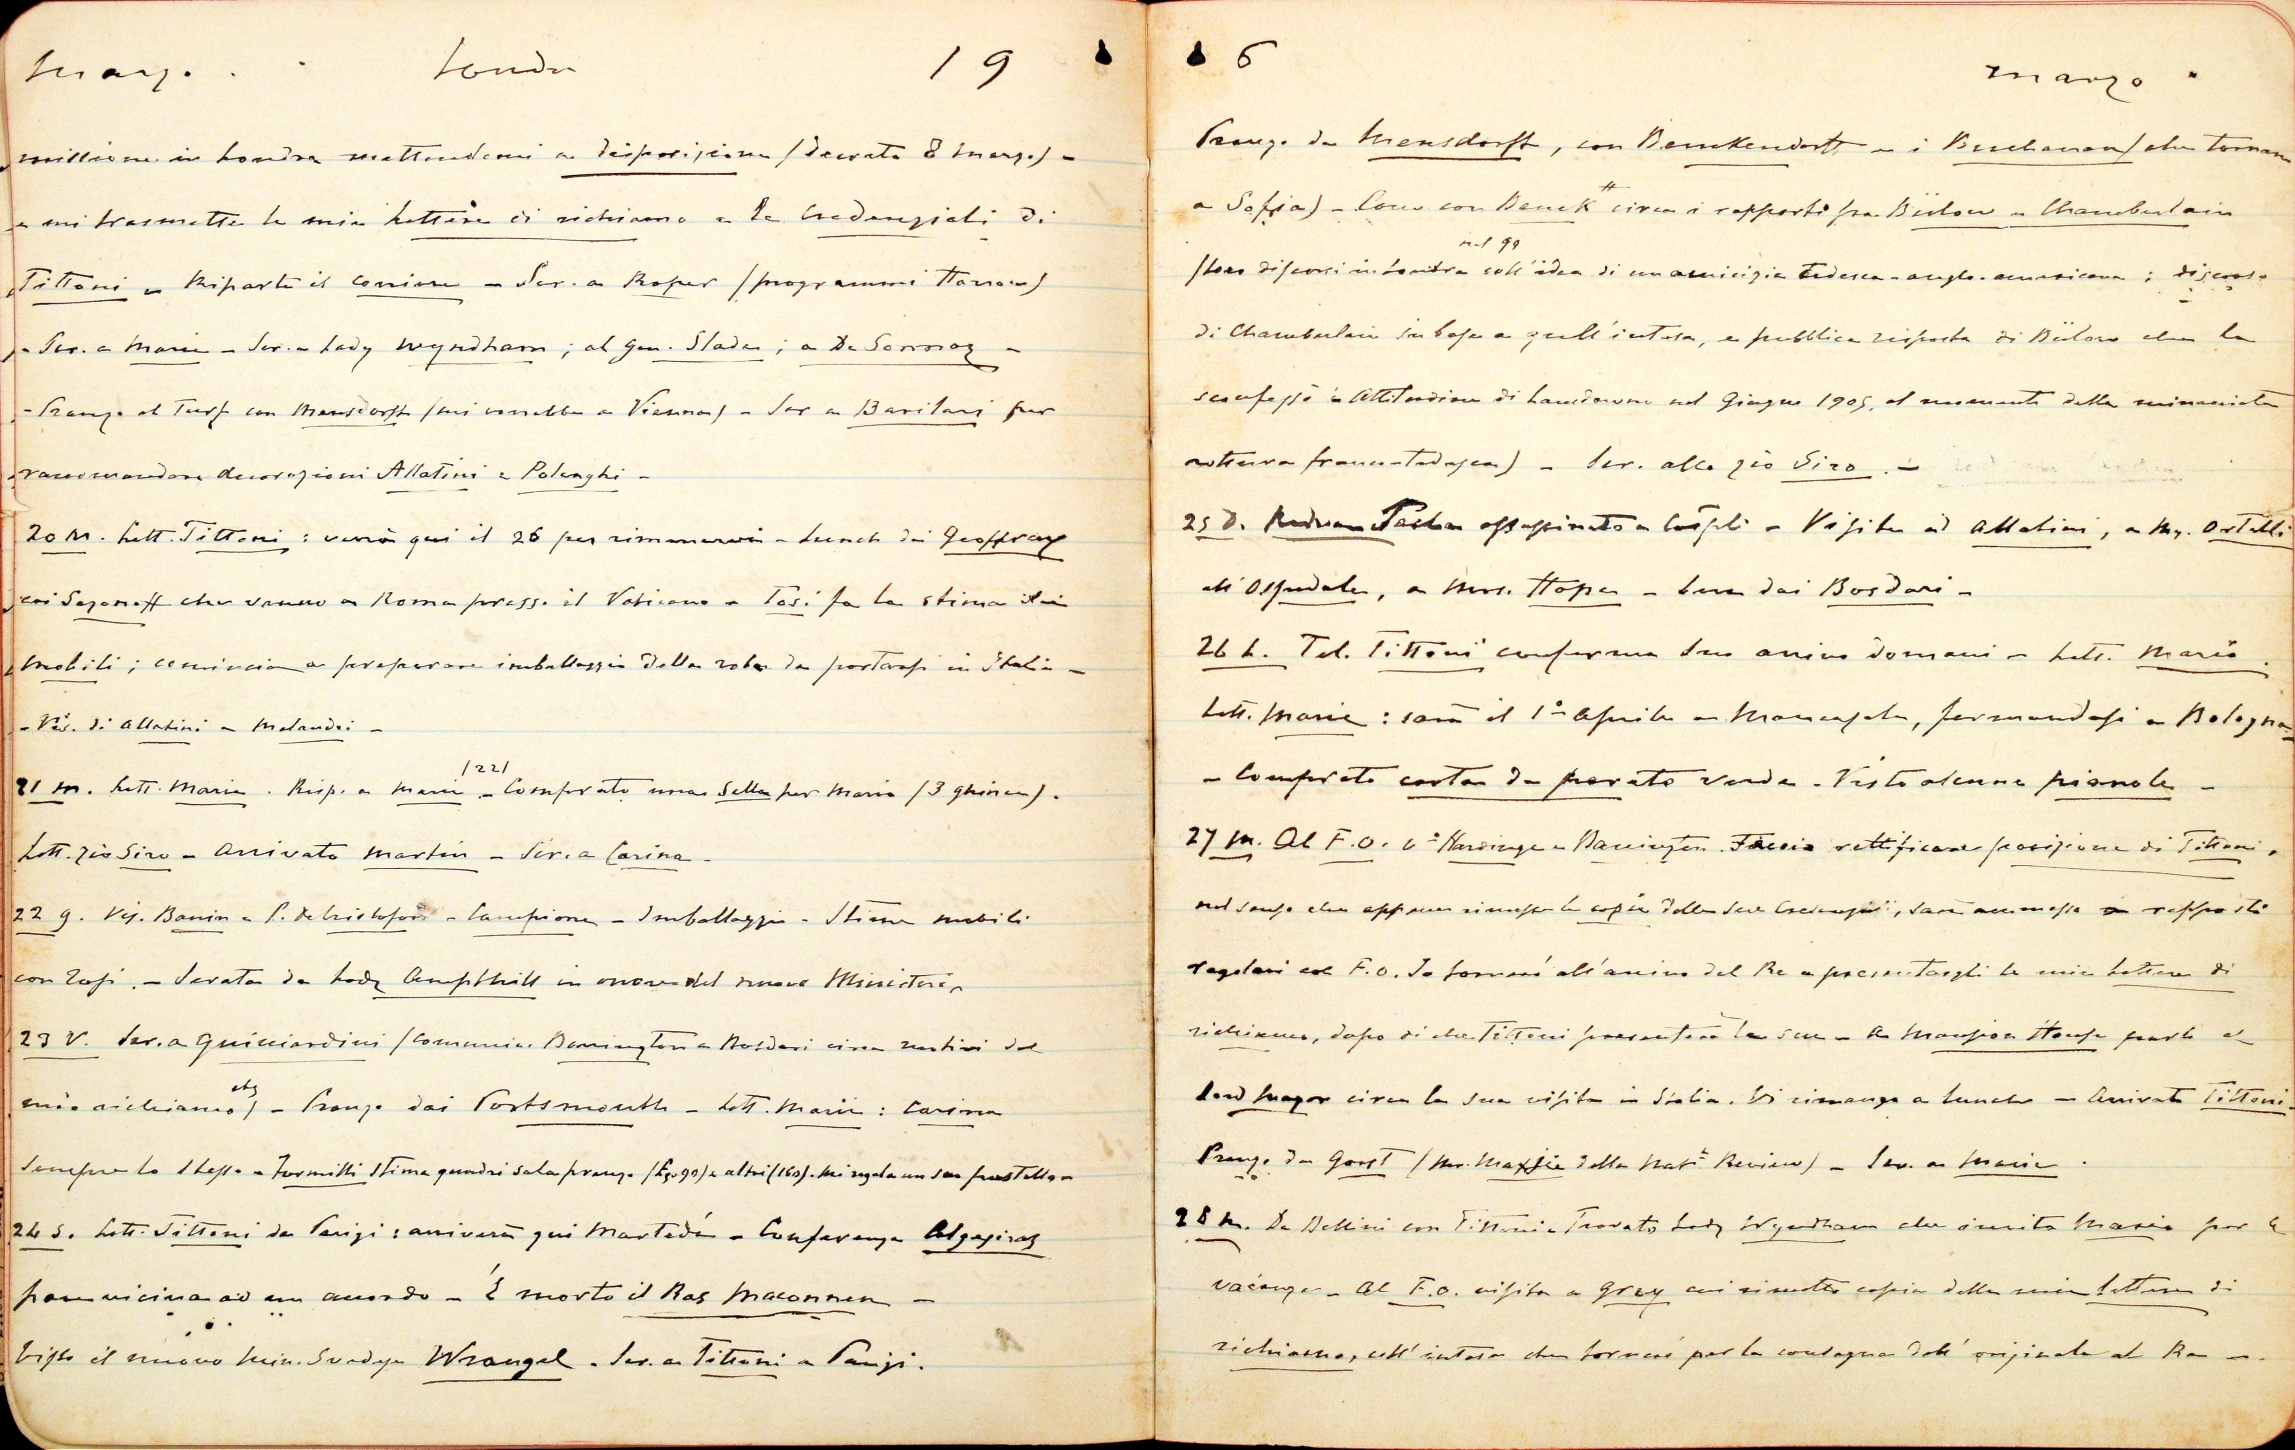 Marzo. Londra 19
missione in Londra mettendomi a disposizione (decreto 8 Marzo) -
e mi trasmette le mie lettere di richiamo e le credenziali di
Tittoni - Riparte il corriere - Scr. a Roper (programmi Harrow)
- Scr. a Marie - Scr. a Lady Wyndham ; al Gen. Slade ; a De Sonnaz -
- Pranzo al Turf con Mensdorff (mi vorrebbe a Vienna) - Scr a Barilari per
raccomandare decorazioni Allatini e Polenghi -
20 M. Lett. Tittoni : verrà qui il 26 per rimanervi - Lunch dai Geoffray
coi Sazonoff che vanno a Roma presso il Vaticano - Tosi fa la stima dei
mobili ; comincia a preparare imballaggio della roba da portarsi in Italia -
- Vis. di Allatini - Melandri -
21 M. Lett. Marie. Risp. a Marie (22) - Comprato una sella per Mario (3 ghinee).
Lett. zio Siro - Arrivato Martin - Scr. a Carina -
22 G. Vis. Banin e P. de - Campione - Imballaggio - Stima mobili
con Tosi. - Serata da Lady Ampthill in onore del nuovo Ministero
23 V. Scr. a Guicciardini (comunic. Barrington a Bosdari circa motivi del
mio richiamo etc) - Pranzo dai Portsmouth - Lett. Marie : Carina
sempre lo stesso - Formilli stima quadri sala pranzo (£ 90) e altri (160). Mi regala un suo pastello -
24 S. Lett. Tittoni da Parigi : arriverà qui Martedì - Conferenza Algesiras
pare vicina ad un accordo - È morto il Ras Maconnen -
Visto il nuovo Min. Svedese Wrangel - Scr. a Tittoni a Parigi.
6 Marzo
Pranzo da Mensdorff, con Benckendorff e i Buchanan (che tornano
a Sofia) - Conv con Benckff circa i rapporti fra Bülow e Chamberlain
(loro discorsi in Londra nel 99 sull'idea di un amicizia tedesca-anglo-americana ; discorso
di Chamberlain in base a quell'intesa, e pubblica risposta di Bülow che la
sconfessò - Attitudine di Lansdowne nel Giugno 1905, al momento della minacciata
rottura franco-tedesca) - Scr. allo zio Siro. -
25 D. Redvan Pacha assassinato a Cospli - Visita ad Allatini, a My. Ortelli
all'Ospedale, a Mrs. Hope - Cena dai Bosdari -
26 L. Tel. Tittoni conferma suo arrivo domani - Lett. Mario.
Lett. Marie : sarà il 1° Aprile a Moncasale, fermandosi a Bologna
- Comprato carta da parato verde - Visto alcune pianole -
27 M. Al F.O. vo Hardinge e Barrington. Faccio rettificare posizione di Tittoni,
nel senso che appena rimessa la copia delle sue Credenziali, sarà ammesso a rapporti
regolari col F.O. Io tornerò all'arrivo del Re a presentargli le mie lettere di
richiamo, dopo di che Tittoni presenterà le sue - A Mansion House parlo al
Lord Mayor circa la sua visita in Italia. Vi rimango a lunch - Arrivato Tittoni -
Pranzo da Gorst (Mr. Maxse della Natl Review) - Scr. a Marie.
28 M. Da Bellini con Tittoni - Trovato Lady Wyndham che invita Mario per le
vacanze - Al F.O. visita a Grey cui rimetto copia delle mie lettere di
richiamo, coll'intesa che tornerò per la consegna dell'originale al Re -